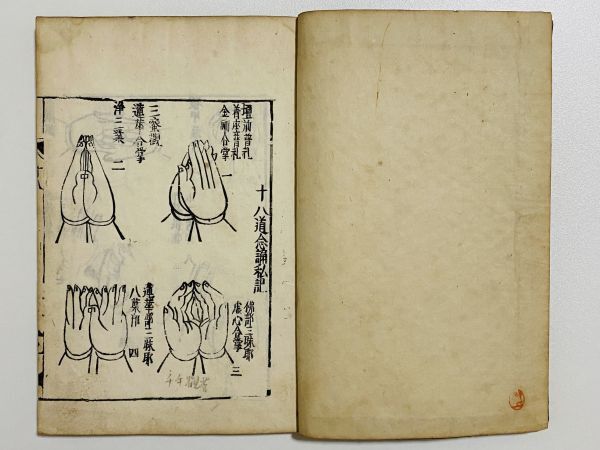 十八道念誦私記
壇前普礼
着座普礼
金剛合掌
一
三密観
蓮華合掌
浄三業 二
佛部三昧耶
虚心合掌
三
蓮華部三昧耶
八葉印
四